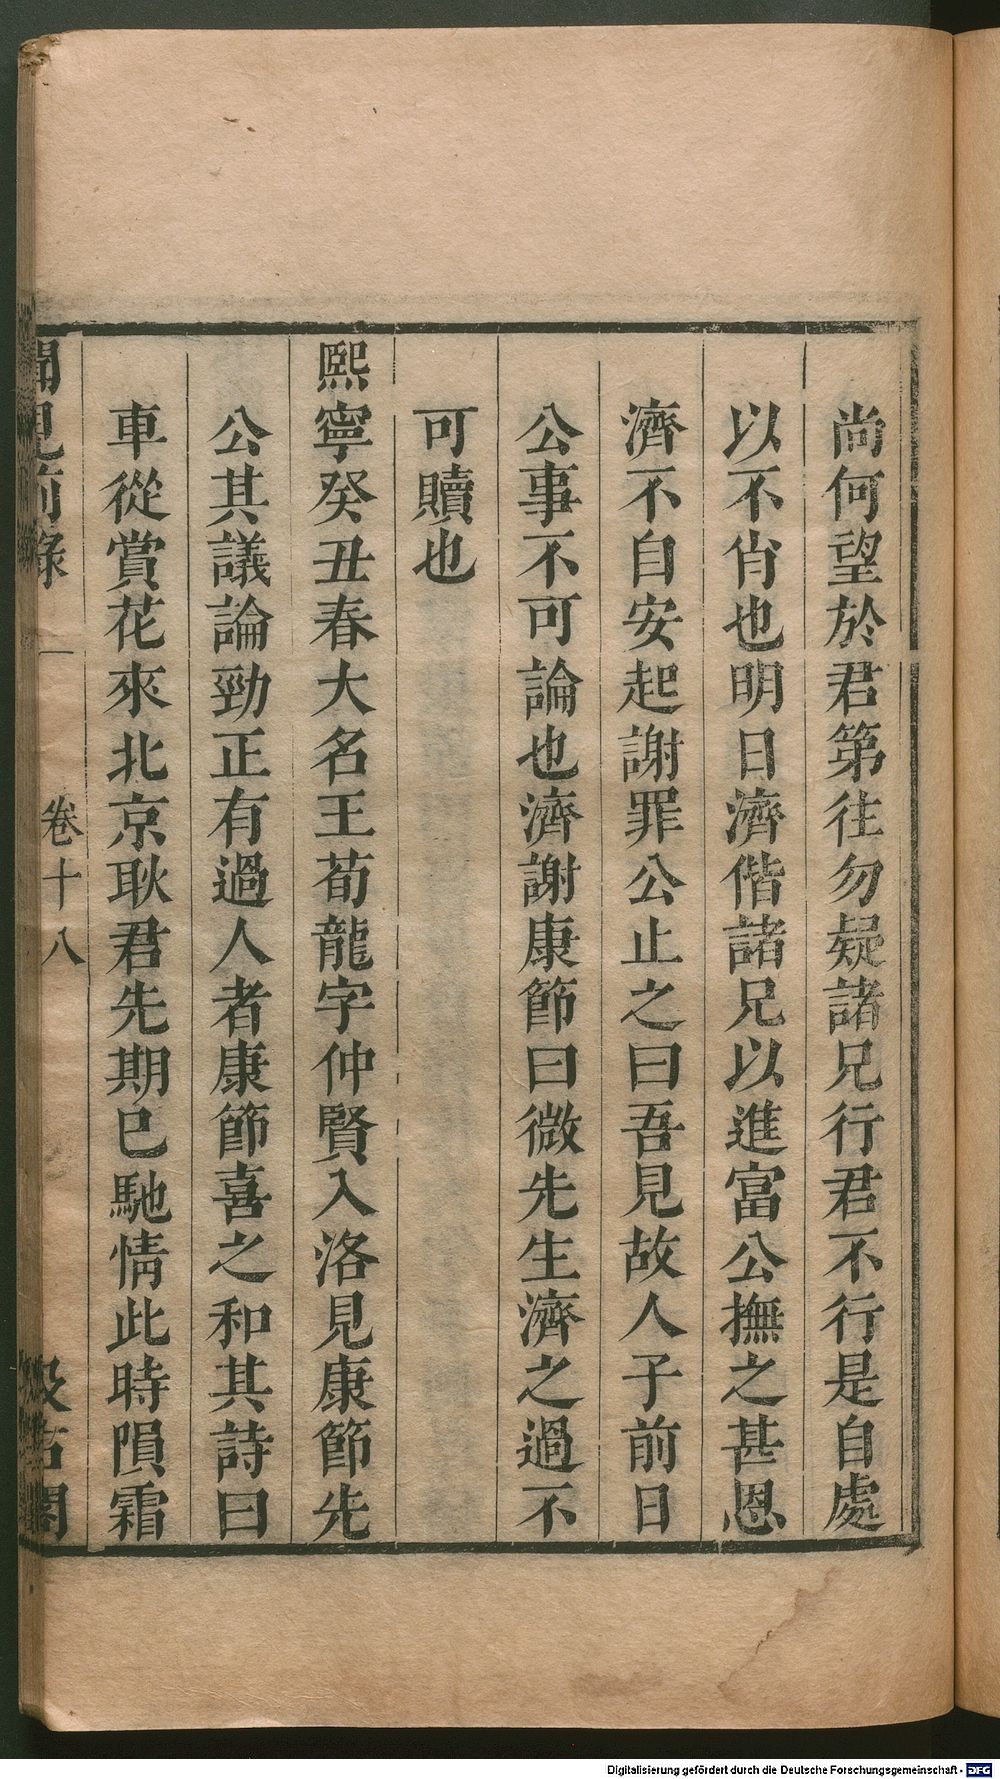 尚何望於君第往勿疑諸兄行君不行是自處
以不肖也明日濟偕諸兄以進富公撫之甚恩
濟不自安起謝罪公止之曰吾見故人子前日
公事不可論也濟謝康節曰微先生濟之過不
可贖也
熙寧癸丑春大名王荀龍字仲賢入洛見康節先
公其議論勁正有過人者康節喜之和其詩曰
車從賞花來北京耿君先期已馳情此時隕霜
聞見前錄
卷十八
汲古閣
Digitalisierung gefördert durch die Deutsche Forschungsgemeinschaft - DFG